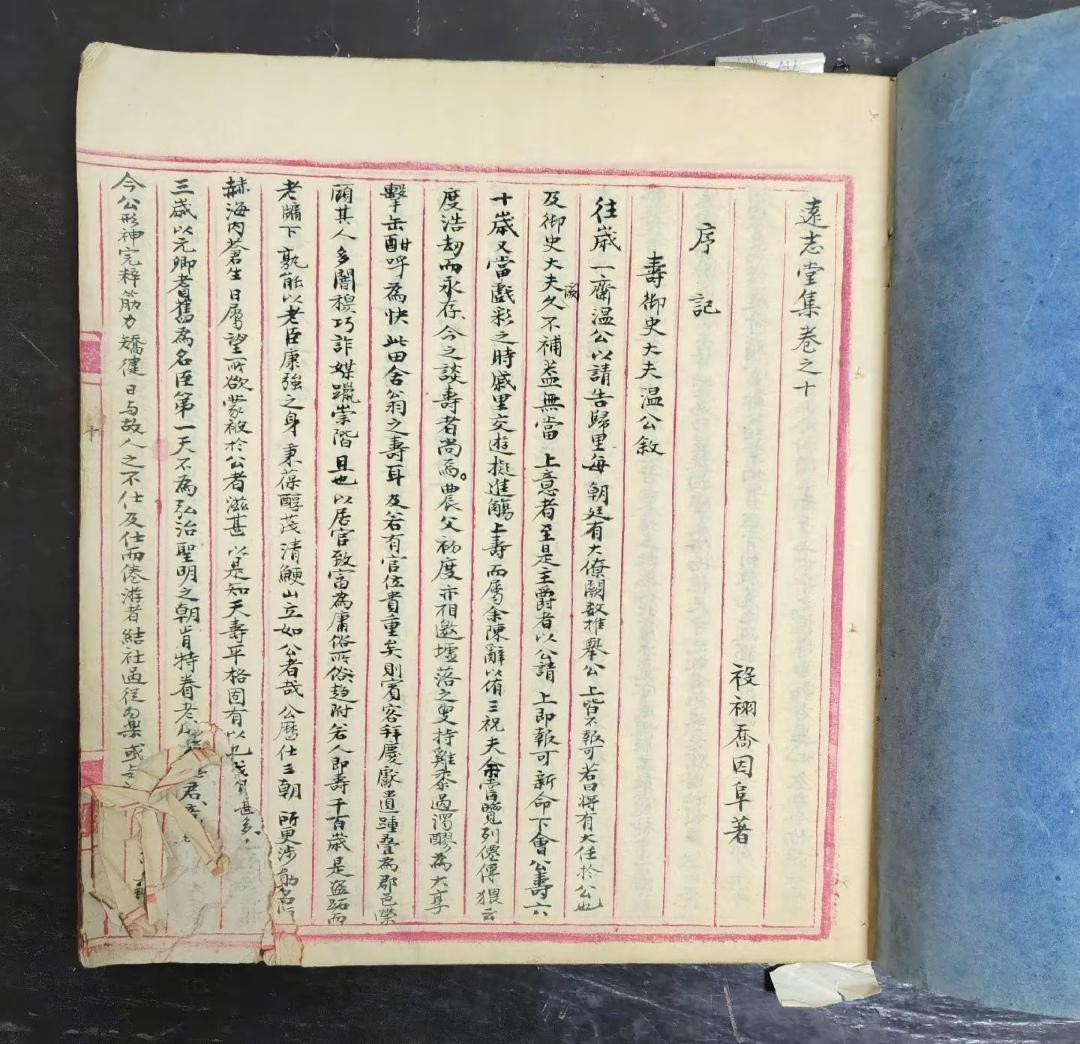 遠志堂集卷之十
祋祤喬因阜著
序記
壽御史大夫溫公敘
往歲一齋溫公以請告歸里每 朝廷有大僚闕數推舉公 上皆不報可若曰將有大任於公也
及御史大夫久不補蓋無當 上意者至是主爵者以公請 上即報可新命下會公壽六
十歲又當戲彩之時戚里交遊擬進觴上壽而屬余陳辭以侑三祝夫余嘗覽列僊傳猥云
度浩劫而永存今之談壽者尚焉農父初度亦相邀墟落之叟持雞黍過濁醪為大享
擊缶酣呼為快此田舍翁之壽耳及若有官位貴重矣則賓客拜慶獻遺踵疊為郡邑榮
顧其人多闇穢巧詐媒躐崇階且也以居官致富為庸俗所俗趨附若人即壽千百歲是盜跖而
老牖下孰能以老臣康強之身秉葆醇茂清鯁山立如公者哉公歷仕三朝所更涉勛名
赫海內蒼生日屬望所欲蒙被於公者滋甚以是知天壽平格固有以也
三歲以元卿耆舊為名臣第一天不為弘治聖明之朝肯特眷老 君
今公形神完粹筋力矯健日与故人之不仕及仕而倦游者結社過從為樂或
十